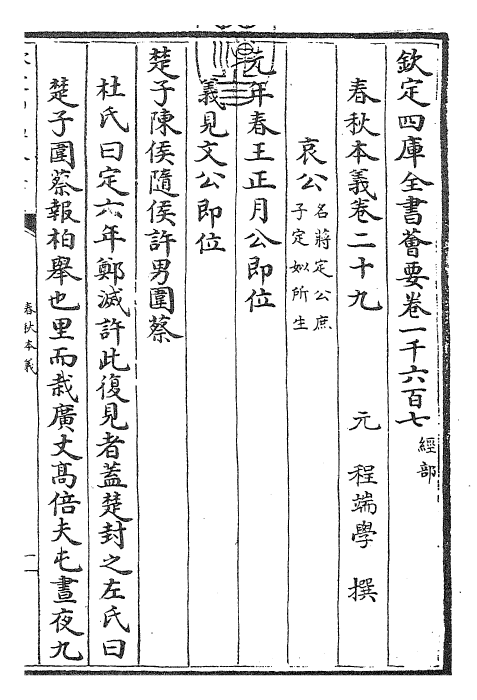 欽定四庫全書薈要卷一千六百七 經部
春秋本義卷二十九 元 程端學 撰
哀公名蔣定公庶子定姒所生
元年春王正月公即位
義見文公即位
楚子陳侯隨侯許男圍蔡
杜氏曰定六年鄭滅許此復見者蓋楚封之左氏曰
楚子圍蔡報柏舉也里而栽廣丈高倍夫屯晝夜九
春秋本義
一